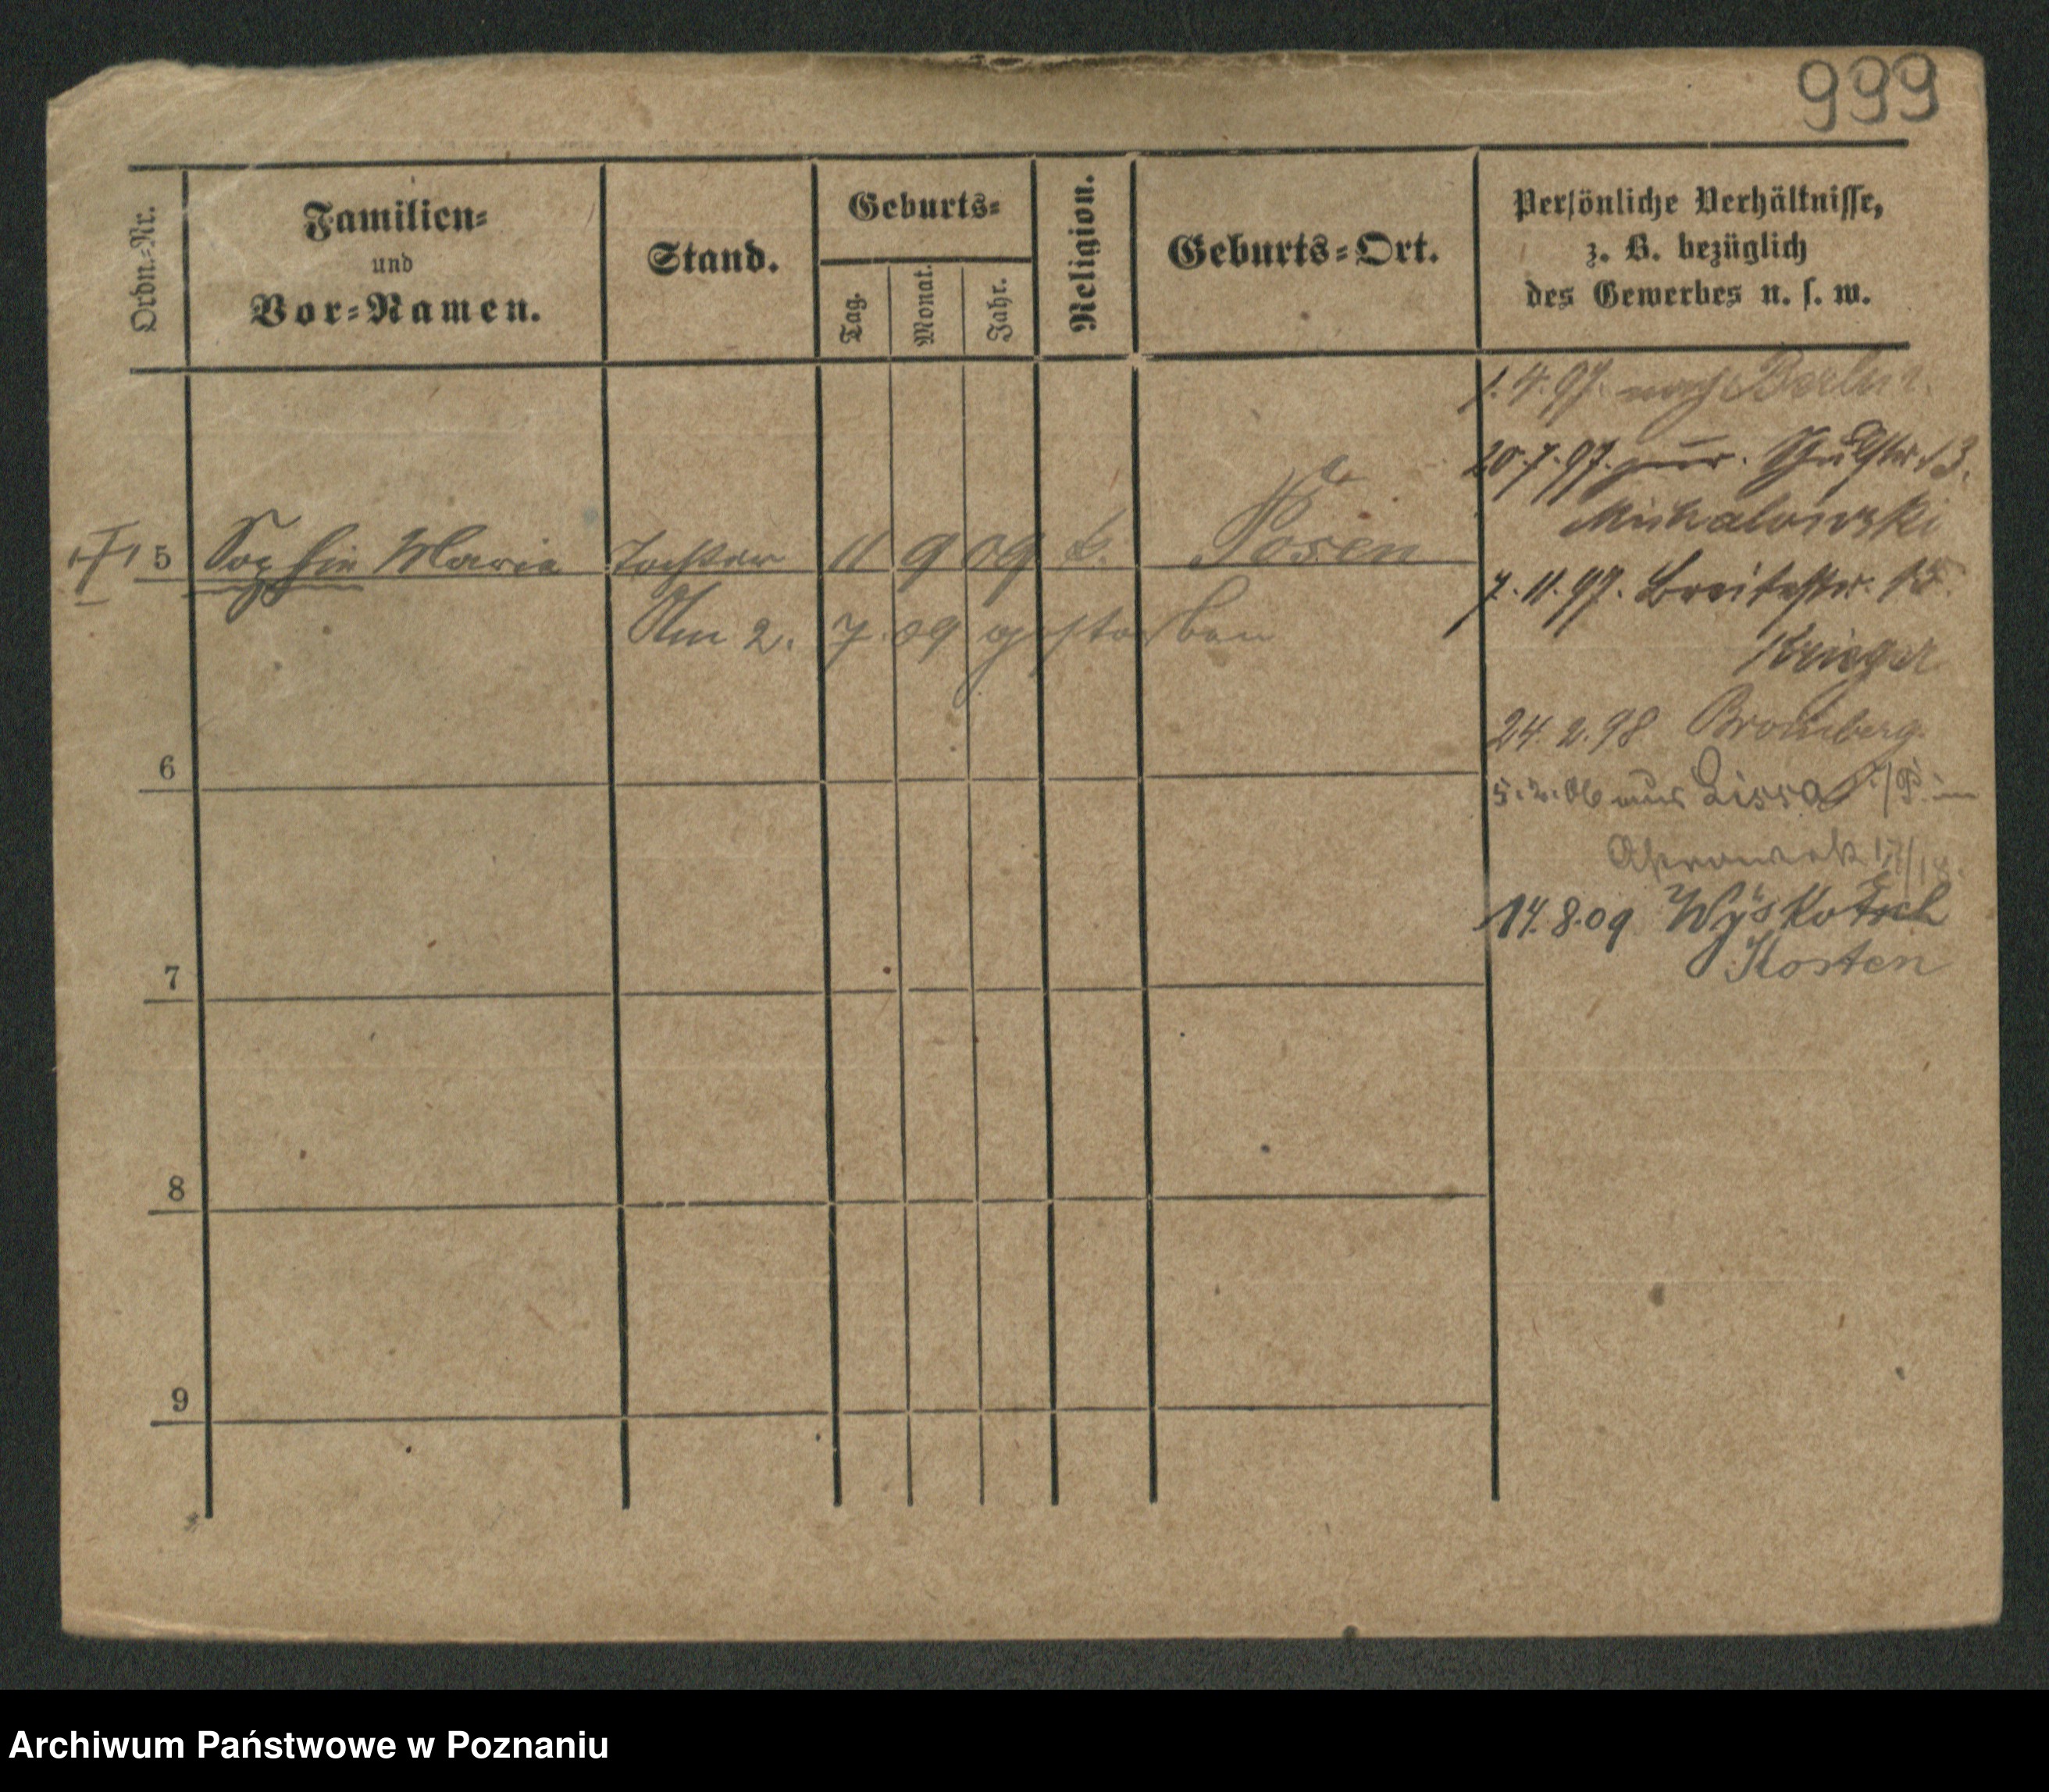 999
Ordn.-Nr.
Familien-
und
Vor-Namen.
Stand.
Geburts-
Tag.
Monat.
Jahr.
Religion.
Geburts-Ort.
Persönliche Verhältnisse,
z. B. bezüglich
des Gewerbes u. s. w.
1.4.97. nach Berlin
20.7.97. 13.
Michalowski
5 Sophie Maria Tochter 11 9 09 k. Posen
7.11.97. Breitestr. 15.
Am 2. 7. 09 gestorben
Krieger
24.2.98 Bromberg.
6
5.2.06 aus Lissa i/P. in
17/18.
14.8.09 Wyskotsch
Kosten
7
8
9
Archiwum Państwowe w Poznaniu